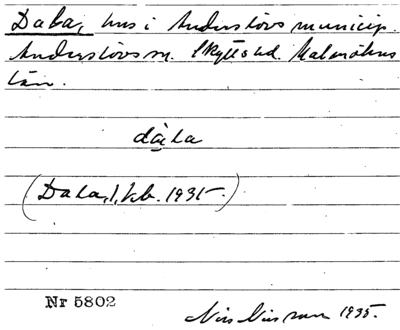 Daba, hus i Anderslövs municip.
Anderslövs sn. Skytts hd. Malmöhus
län.
dåba
(Daba, l, kb. 1935.)
Nr 5802
Nils Nilsson 1935.